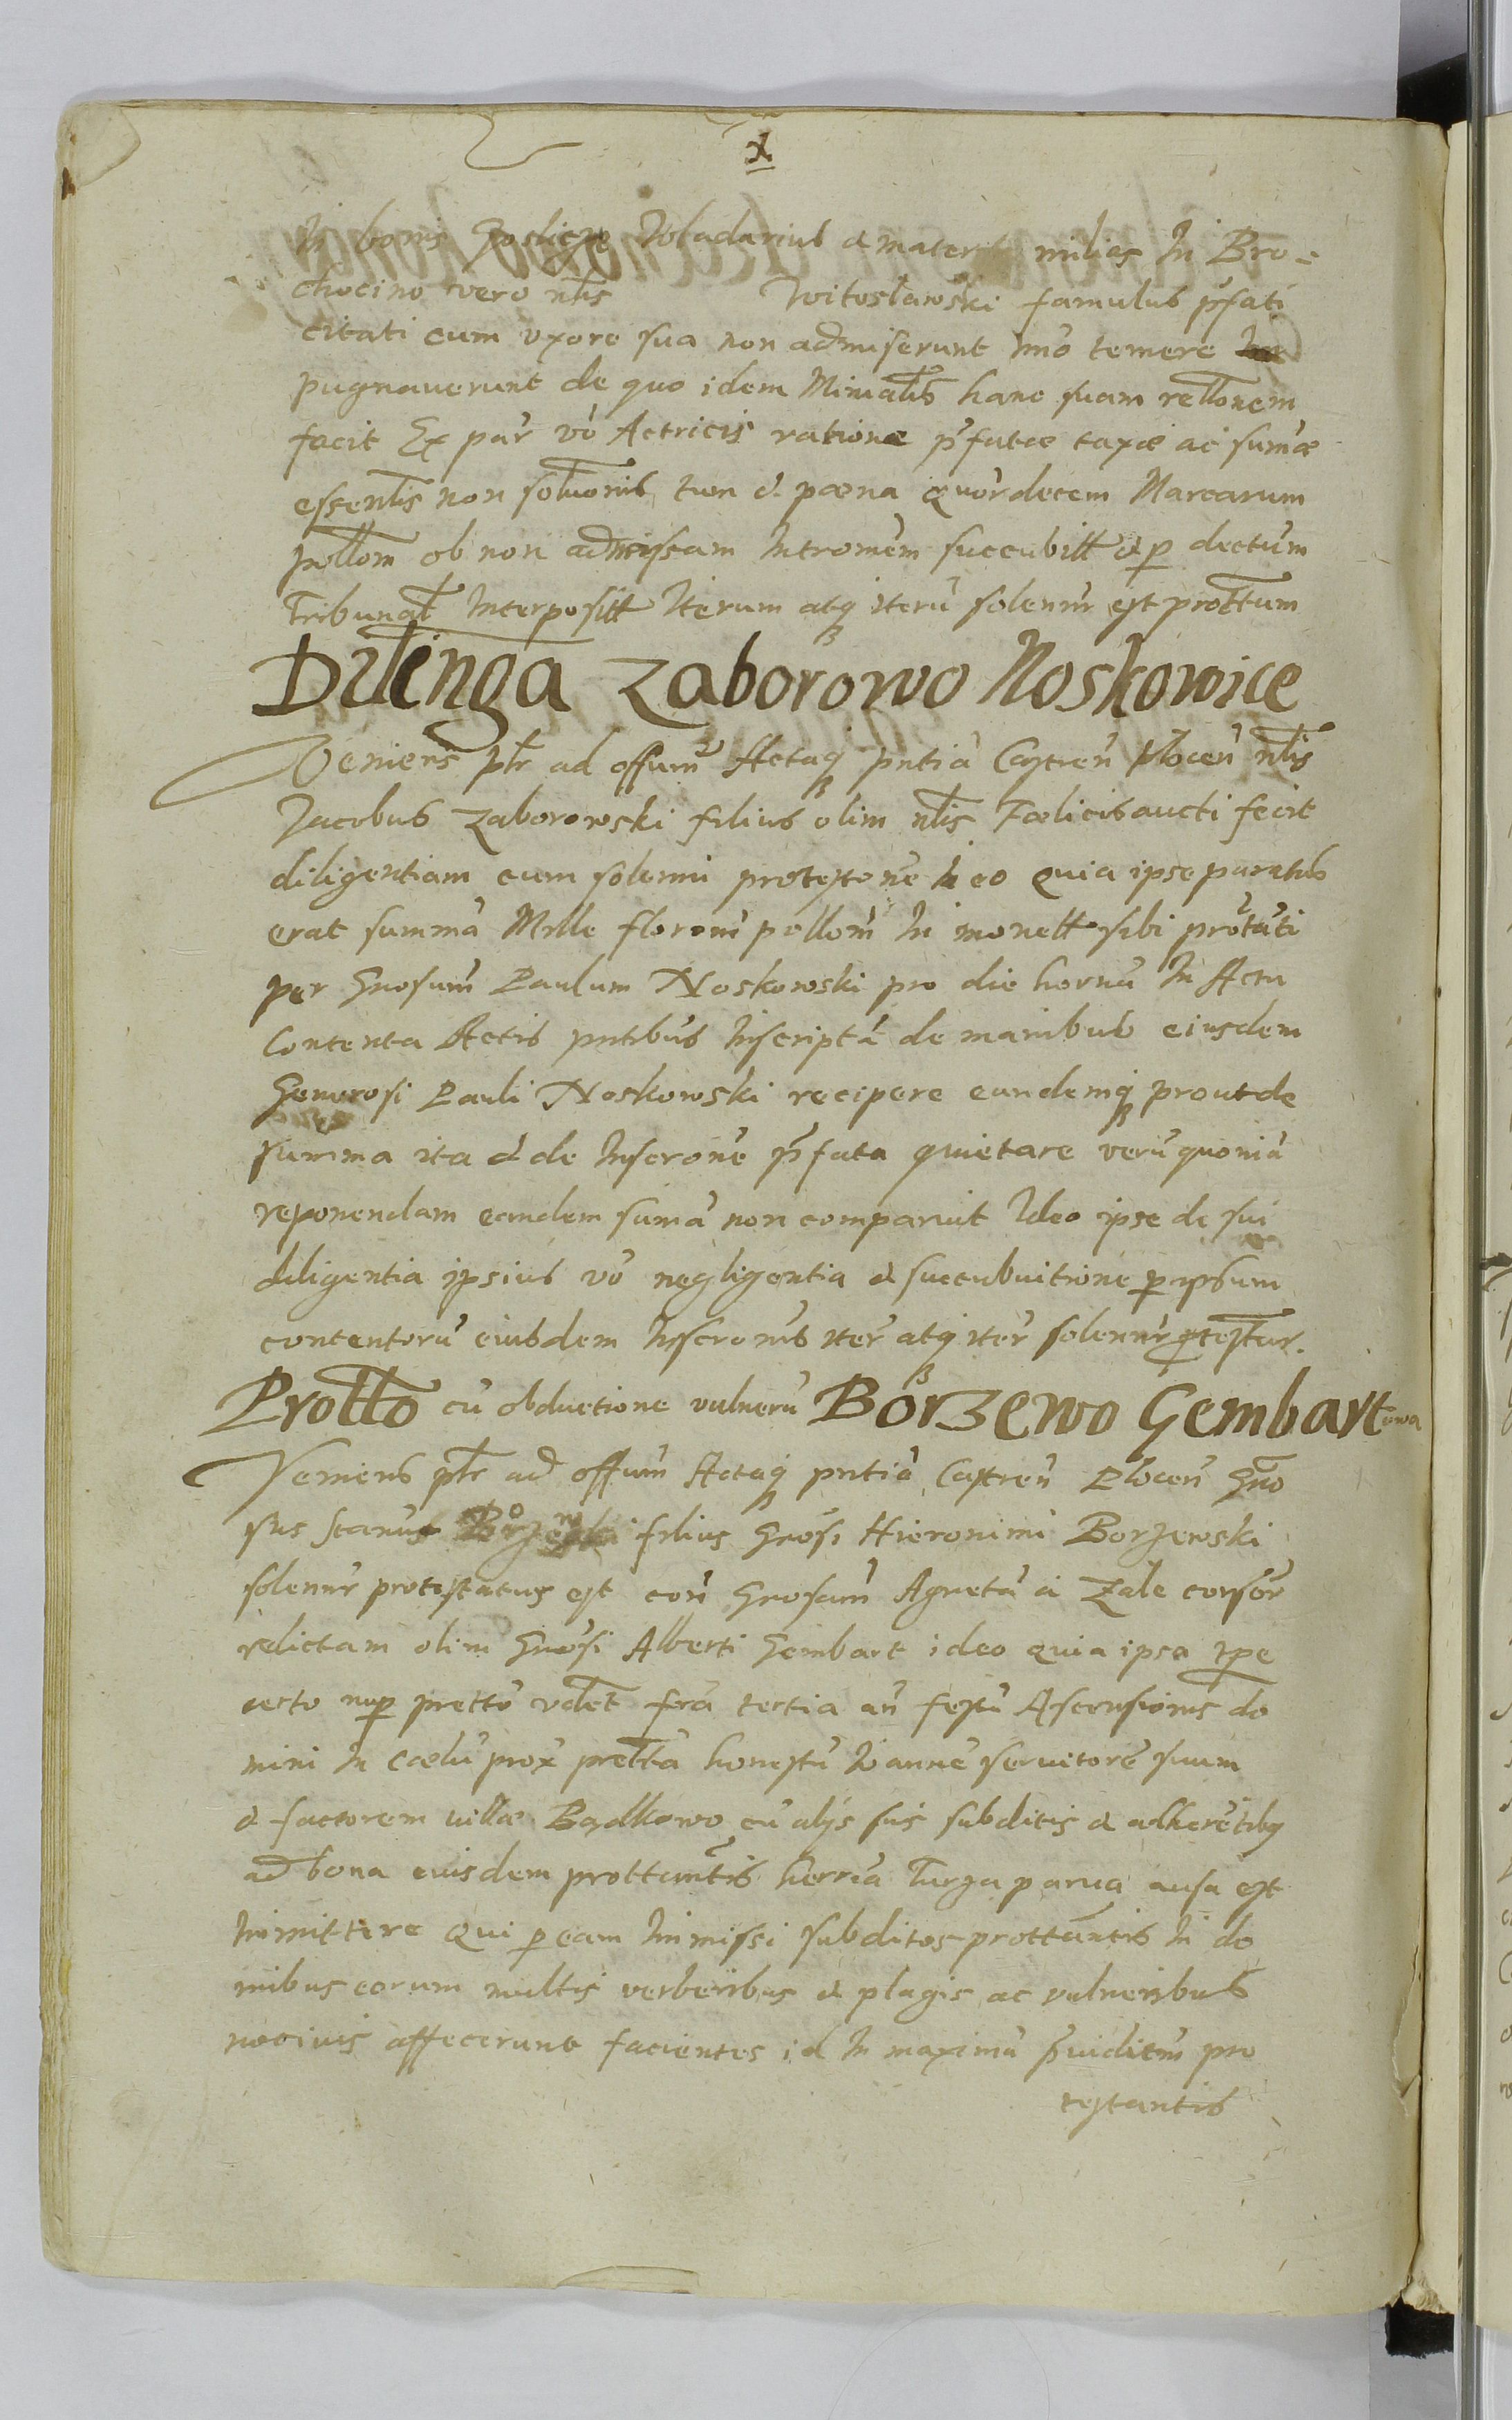 In bonis Włodarius et mater milies In Bro-
chocino vero nlis Witosławski famulus pfati
citati cum uxore sua non admiserunt imo temere
pugnaverunt de quo idem Minialis hanc suam rellonem
facit Ex par vo Actricis ratione pfatae taxae ac sumae
essenlis non solutionis tum et paena quordecem Marcarum
pollom ob non admissam Intromem succubitt et p dectum
Tribunal Interpositt Iterum atq iteru solennr est prottum
Dilinga Zaborowo Noskowice
Veniens plr ad offum Actaq pntia Castren Plocen nlis
Jacobus Zaborowski filius olim nlis Faelicis aucti fecit
diligentiam cum solenni protestone ideo quia ipse paratus
erat summa Mille floreni pollom In monett sibi
per Gnosum Paulum Noskowski pro die horna In Actu
Contenta Actis pntibus Inscripta de manibus eiusdem
Generosi Pauli Noskowski recipere eundemq prout de
summa ita et de Inscrone pfata quietare veru quonia
reponendam eandem suma non comparuit Ideo ipse de sui
diligentia ipsius vo negligentia et succubuitione p ipsum
contentoru eiusdem Inscronis iter atq iter solennr ptestur.
Protto cu obductione vulneru Borzewo Gembartowa
Veniens plr ad offum Actaq pntia Castren Plocen Gno
sus Stanus Borzewski filius Gnosi Hieronimi Borzewski
solennr protestatus est con Gnosam Agneta a Zale consor
relictam olim Gnosi Alberti Gembart ideo quia ipsa tpe
certo nup pretto vdlet fra tertia an festu Ascensionis do
mini In caelu prox pretta honestu Ioanne servitore suum
et factorem villae Bądkowo cu alijs suis subditis et adheretibq
ad bona eiusdem prottantis herria Turza parva ausa est
Inmittere Qui p eam Inmissi subditos prottantis In do
mibus eorum multis verberibus et plagis ac vulneribus
nocivis affecerunt facientes id In maxima pvidicm pro
testantis